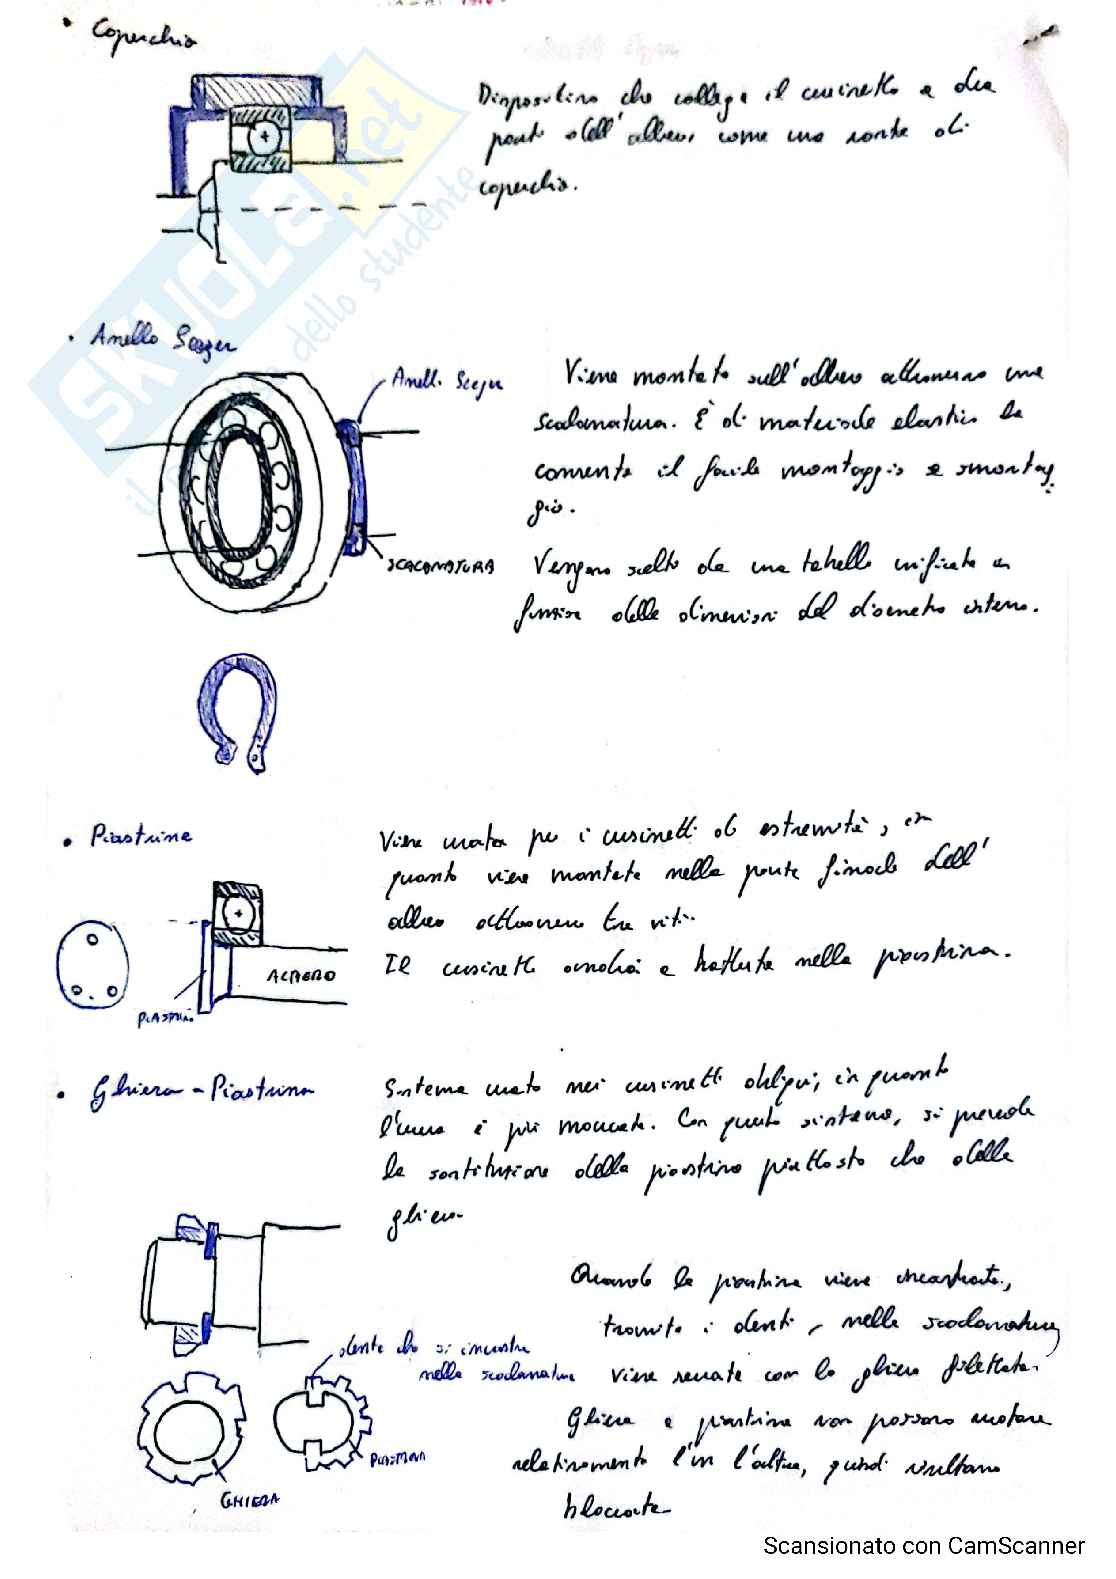 • Coperchio
Dispositivo che collega il cuscinetto a due
parti dell'albero, come una sorta di
coperchio.
SKUOLA.net
il portale dello studente
• Anello Seeger
Anello Seeger
Viene montato sull'albero attraverso una
scalanatura. È di materiale elastico
consente il facile montaggio e smontag
gio.
SCACANATURA
Vengono scelto da una tabella unificata in
funzione delle dimensioni del diametro interno.
• Piastrina
Viene usata per i cuscinetti di estremità, in
quanto viene montata nella parte finale dell'
albero attraverso tre viti.
Il cuscinetto andrà a battuta nella piastrina.
ALBERO
PIASTRINA
• Ghiera - Piastrina
Sistema usato nei cuscinetti obliqui, in quanto
l'usura è più marcata. Con questo sistema, si prevede
la sostituzione della piastrina piuttosto che della
ghiera.
Quando la piastrina viene incastrata,
tramite i denti, nella scalanatura,
dente che si incastra
nella scalanatura
viene serrata con la ghiera filettata.
Ghiera e piastrina non possono ruotare
relativamente l'un l'altra, quindi risultano
bloccate.
PIASTRINA
GHIERA
Scansionato con CamScanner